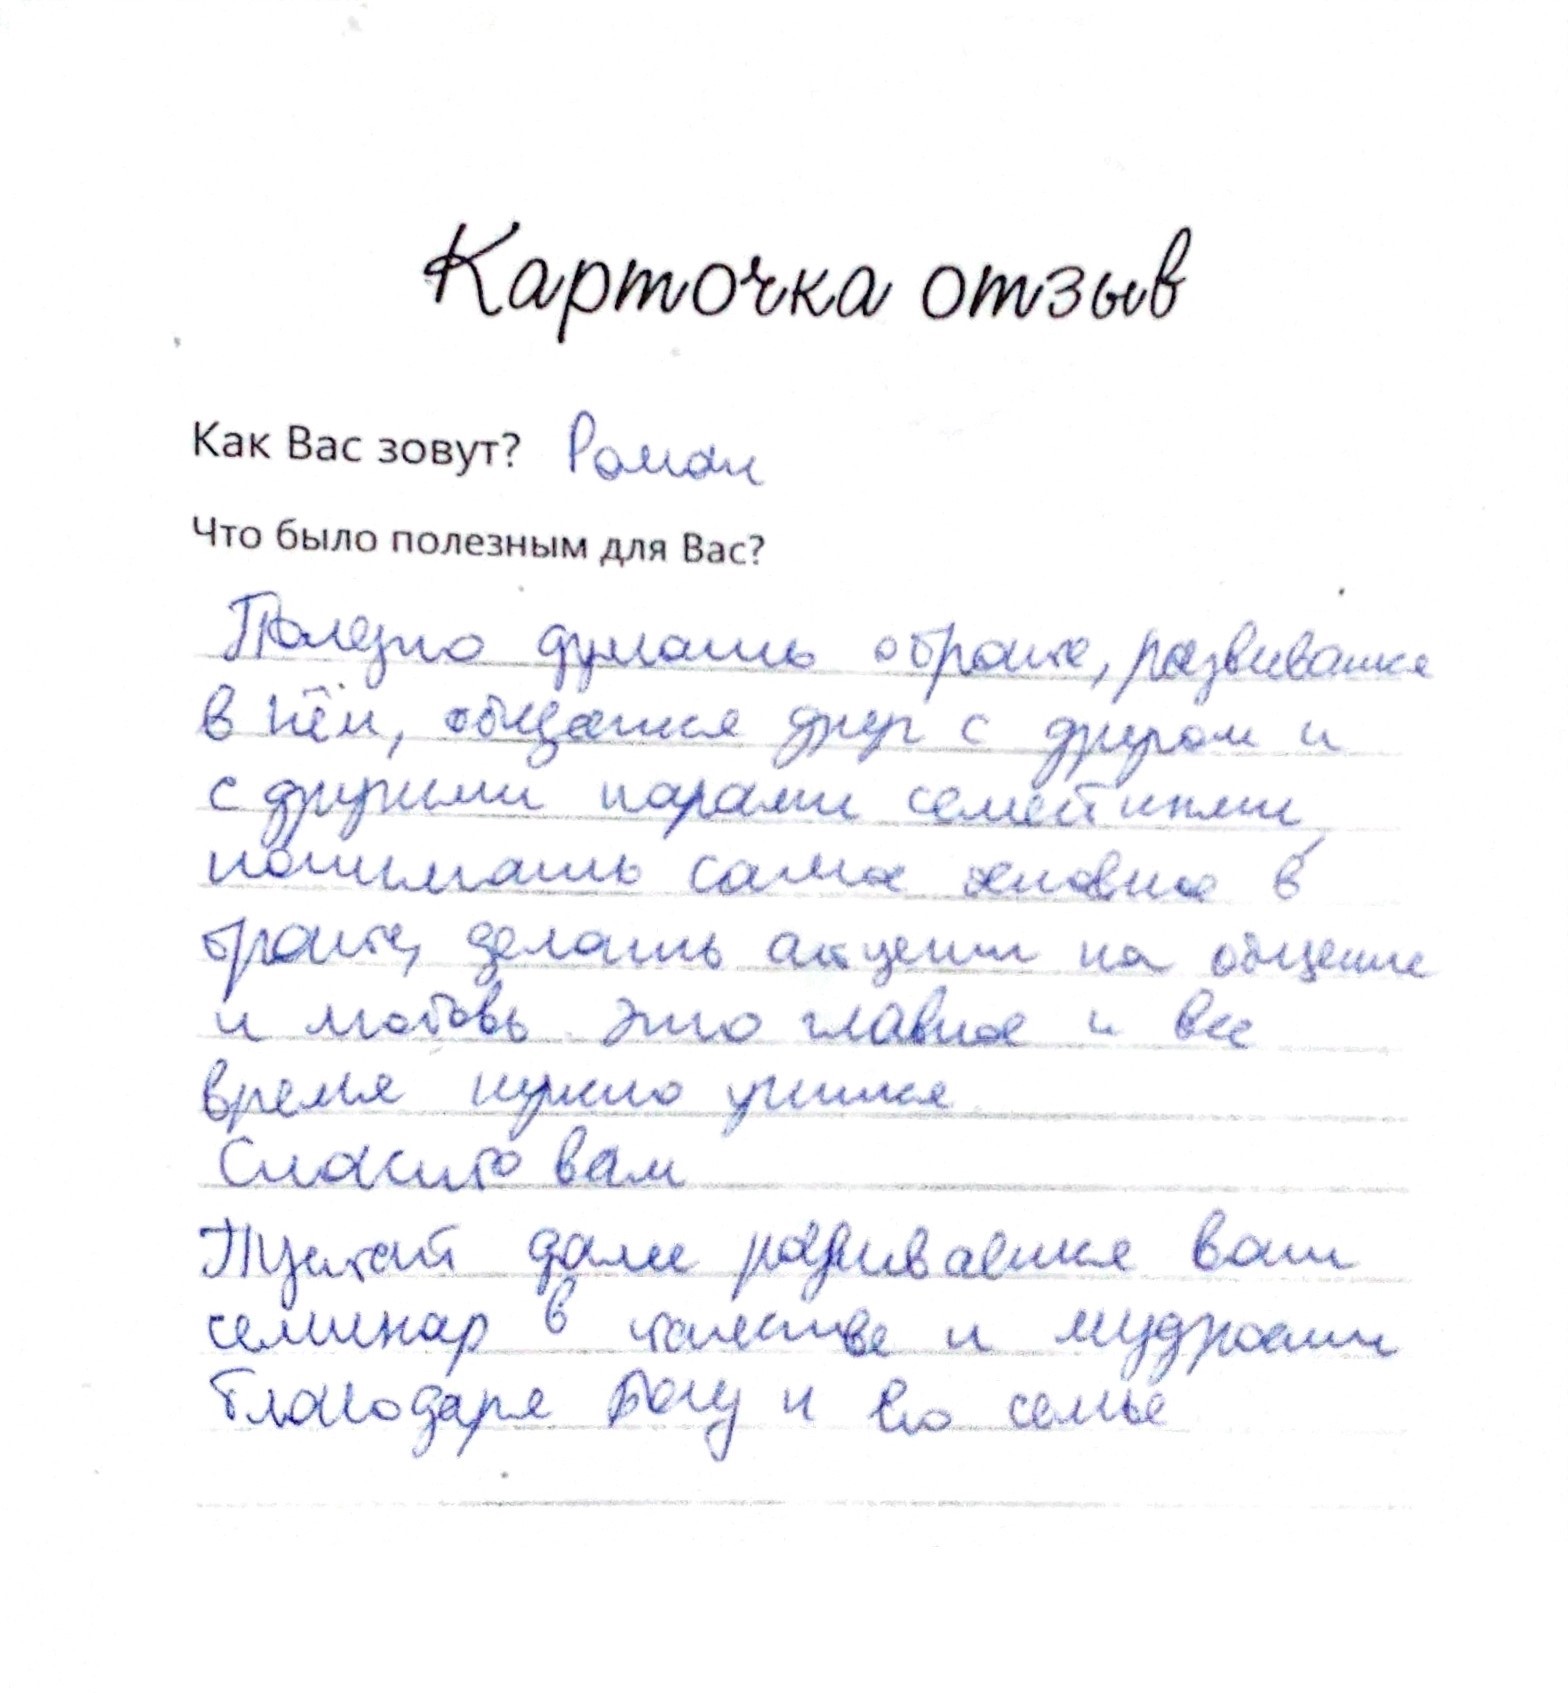 Карточка отзыв
Как Вас зовут? Роман
Что было полезным для Вас?
Полезно думать о браке, развиваться
в нём, общаться друг с другом и
с другими парами семейными,
понимать самое основное в
браке, делать акцент на общение
и любовь это главное и все
время нужно учится
Спасибо вам
Пускай далее развивается ваш
семинар в качестве и мудрости
благодаря Богу и его семье